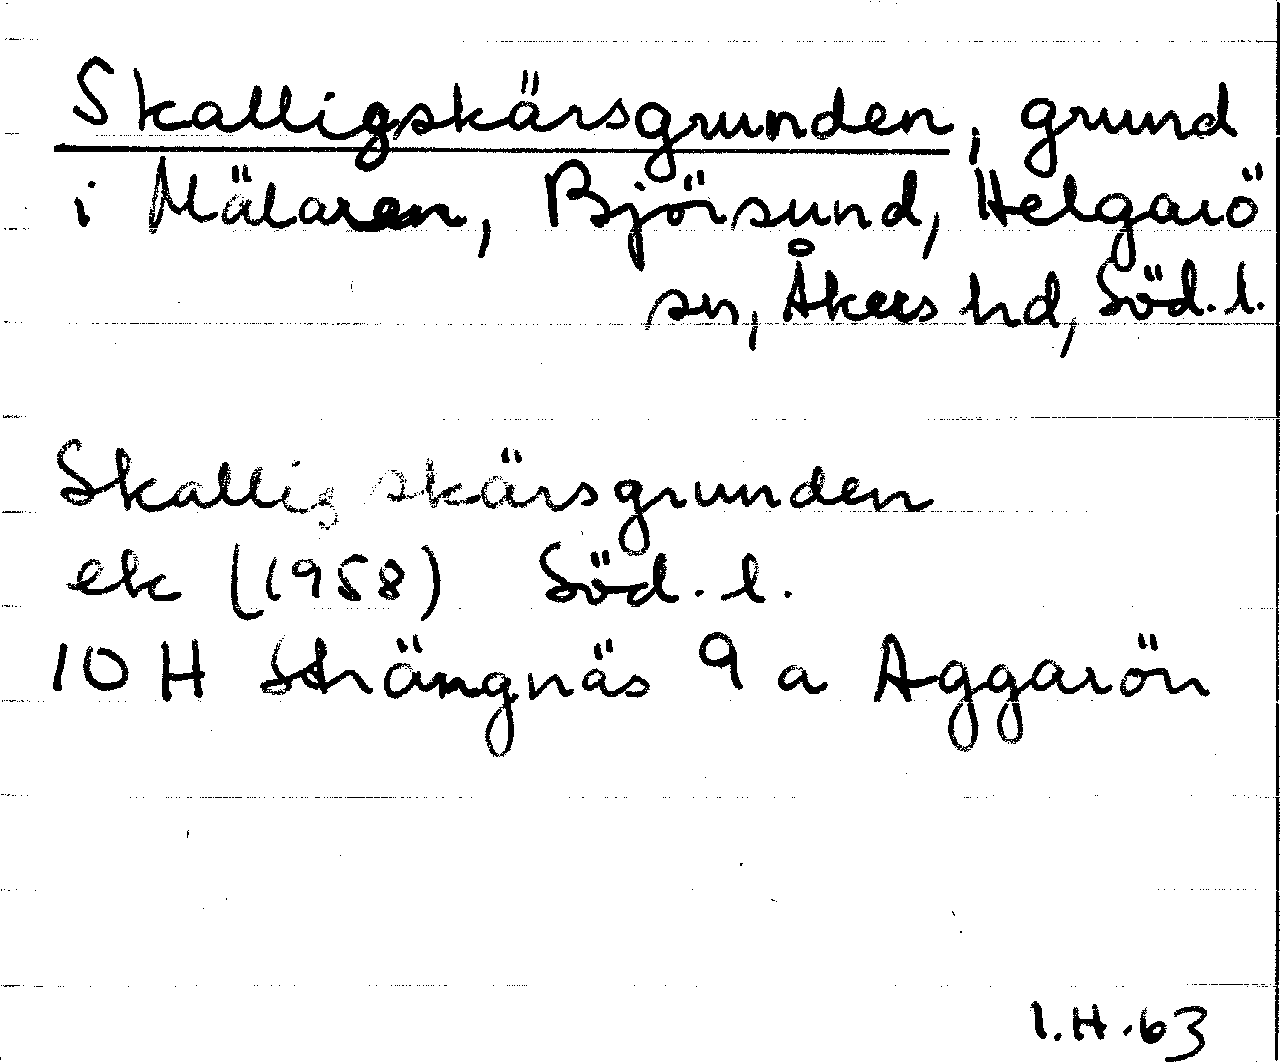 Skalligskärsgrunden, grund
i Mälaren, Björsund, Helgarö
sn, Åkers hd, Söd. l.
Skalligskärsgrunden
ek (1958) Söd. l.
10 H Strängnäs 9 a Aggarön
I.H. 63